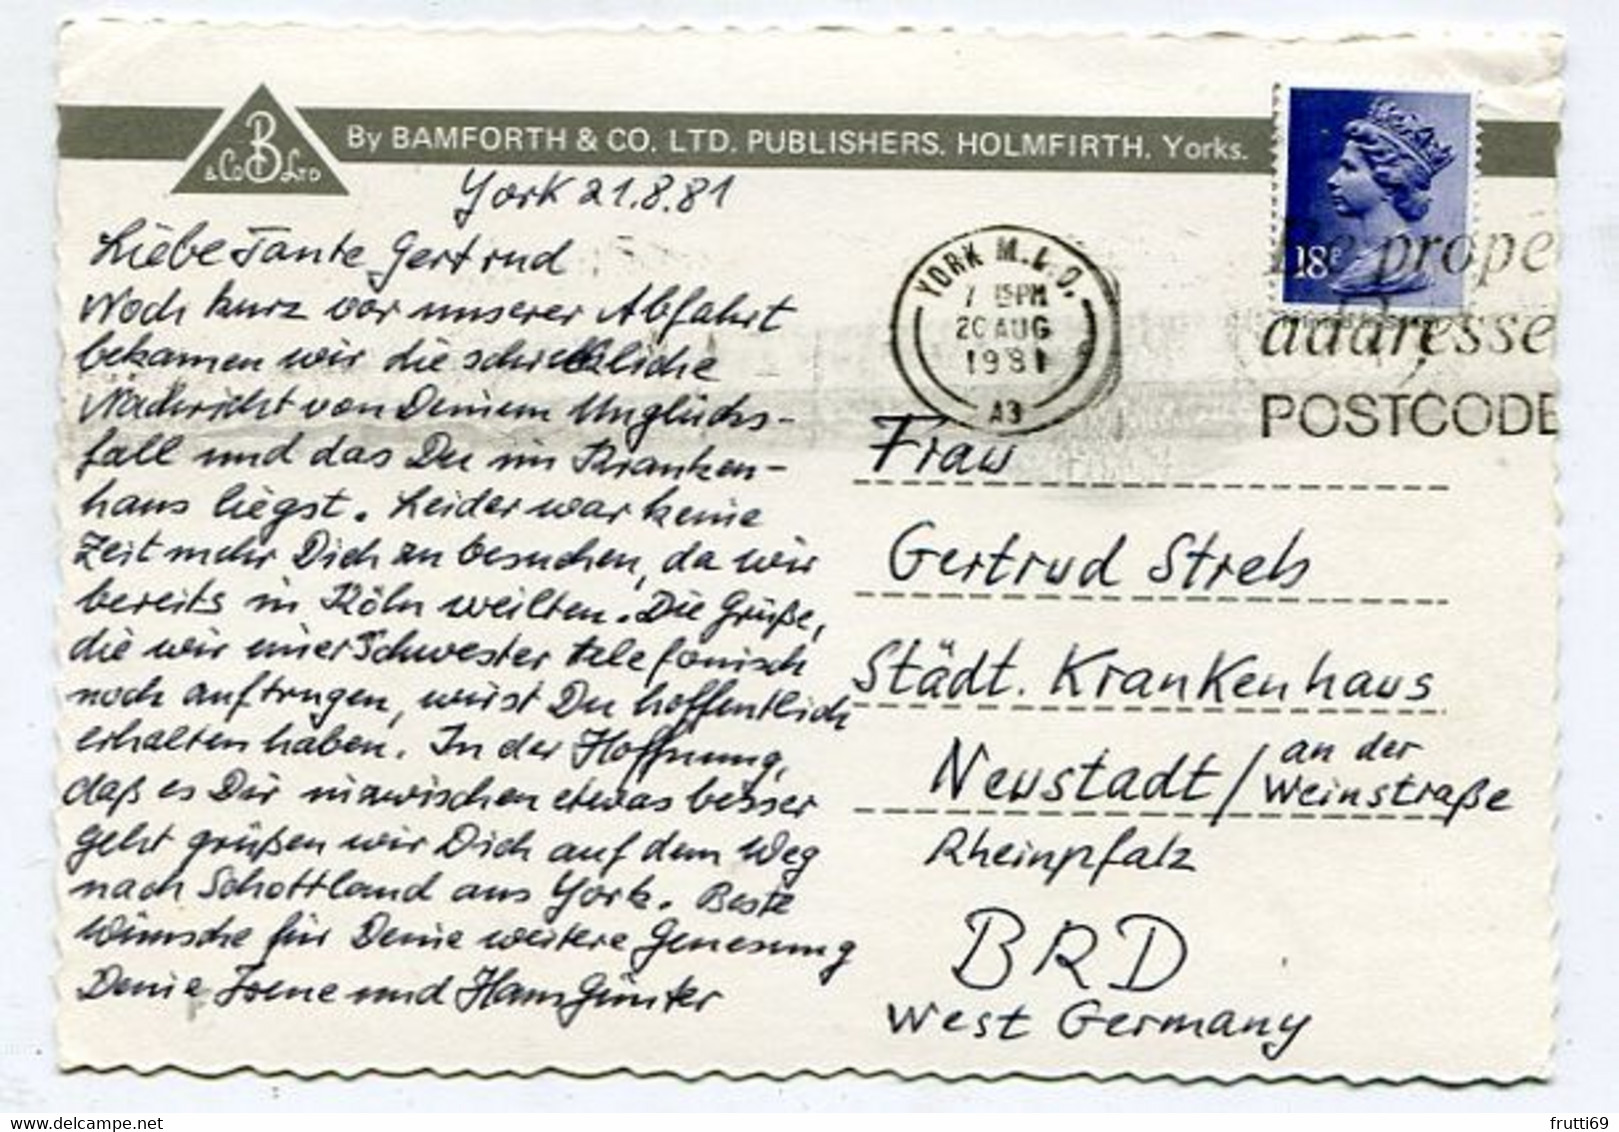 By BAMFORTH & CO. LTD. PUBLISHERS. HOLMFIRTH. Yorks.
B
& Co LTD
York 21.8.81
Liebe Tante Gertrud
Noch kurz vor unserer Abfahrt
bekamen wir die schreckliche
Nachricht von Deinem Unglücks-
fall und das Du im Kranken-
haus liegst. Leider war keine
Zeit mehr Dich zu besuchen, da wir
bereits in Köln weilten. Die Grüße,
die wir einer Schwester telefonisch
noch auftrugen, wirst Du hoffentlich
erhalten haben. In der Hoffnung,
daß es Dir inzwischen etwas besser
geht grüßen wir Dich auf dem Weg
nach Schottland aus York. Beste
Wünsche für Deine weitere Genesung
Deine Irene und Hansgünter
18P
YORK M.L.O.
15PM
20 AUG
1981
A3
Be prope
addresse
POSTCODE
Frau
Gertrud Streb
Städt. Krankenhaus
Neustadt / an der
Weinstraße
Rheinpfalz
BRD
West Germany
frutti69